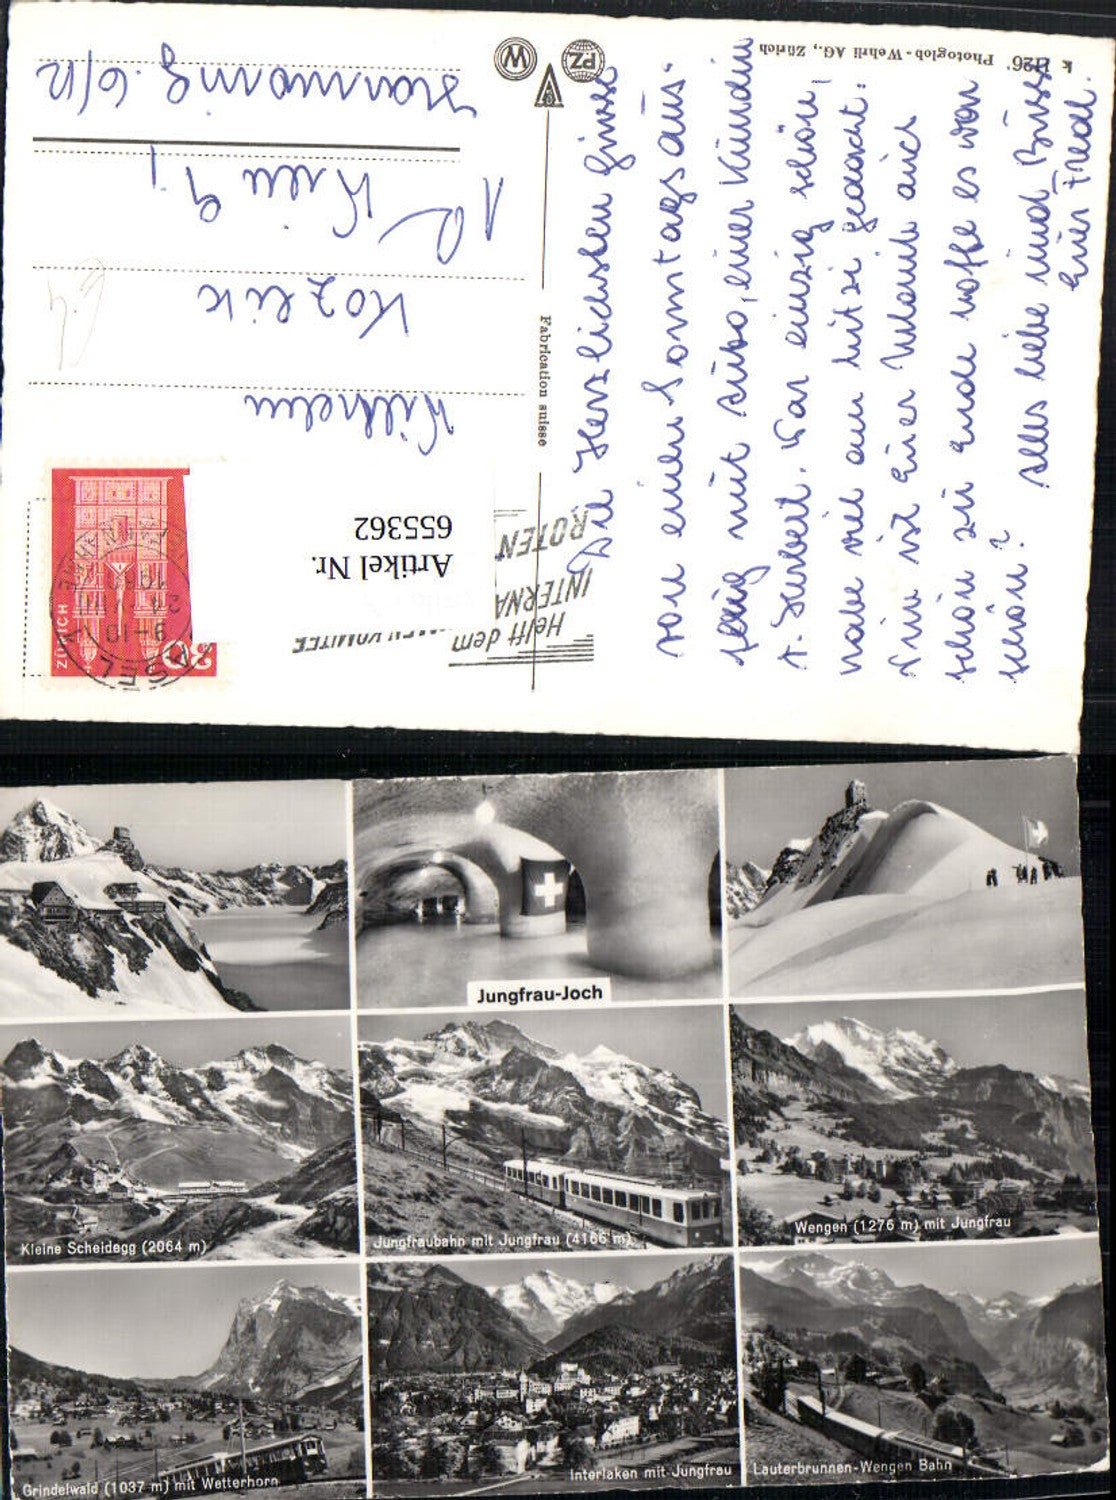 k 1126. Photoglob-Wehrli AG., Zürich
PZ
W
Fabrication suisse
Helft dem
INTERNA
ROTEN
KOMITEE
ZÜRICH
BASEL
9-10
Artikel Nr.
655362
Wilhelm
Kozlik
Wien 9.
6/12
Die Herzlichsten Grüsse
von einem Sonntags aus-
flug mit
einer Kundin
Herbert. War einzig schön,
habe viel an Mitzi gedacht.
Nun ist Euer Urlaub auch
schön zu Ende hoffe es war
schön?
Alles Liebe und Bussi
Euer Fredl.
Jungfrau-Joch
Kleine Scheidegg (2064 m)
Jungfraubahn mit Jungfrau (4166 m)
Wengen (1276 m) mit Jungfrau
Grindelwald (1037 m) mit Wetterhorn
Interlaken mit Jungfrau
Lauterbrunnen-Wengen Bahn